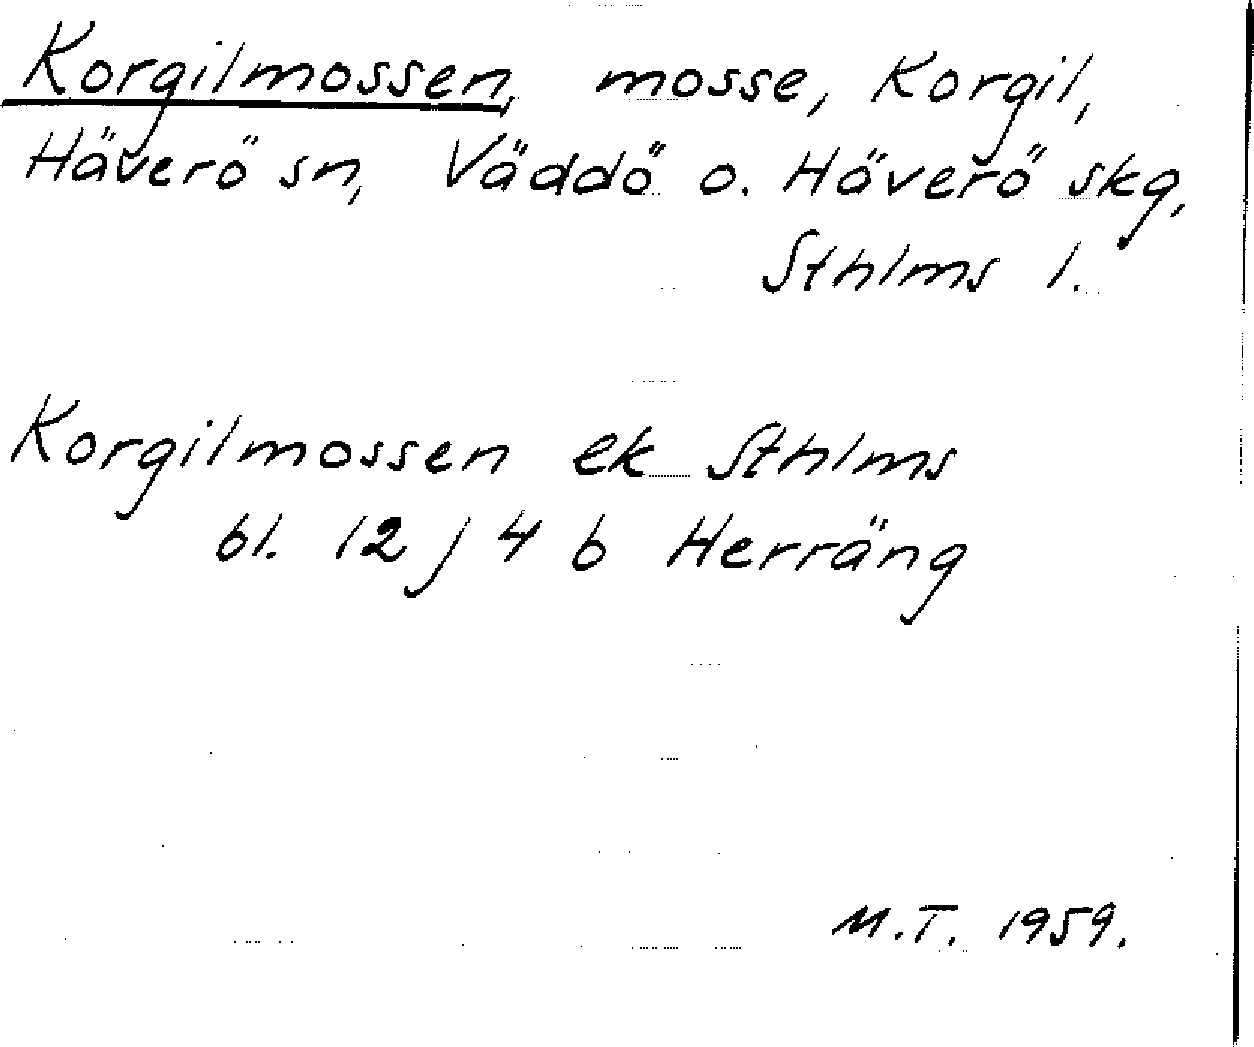 Korgilmossen, mosse, Korgil,
Häverö sn, Väddö o. Häverö skg,
Sthlms l.
Korgilmossen ek Sthlms
bl. 12 j 4 b Herräng
M.T. 1959.